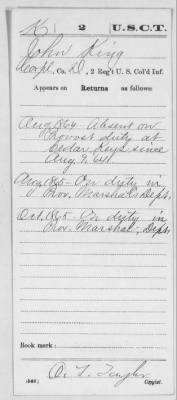 K | 2 | U.S.C.T.
John King
Corpl, Co. D, 2 Reg't U. S. Col'd Inf.
Appears on Returns as follows:
Aug 1864 - Absent on
Provost duty at
Cedar Keys since
Aug. 9, 64.
Aug 1865 - On duty in
Prov. Marshal's Dept.
Oct. 1865 - On duty in
Prov. Marshal, Dept.
Book mark:
Copyist.